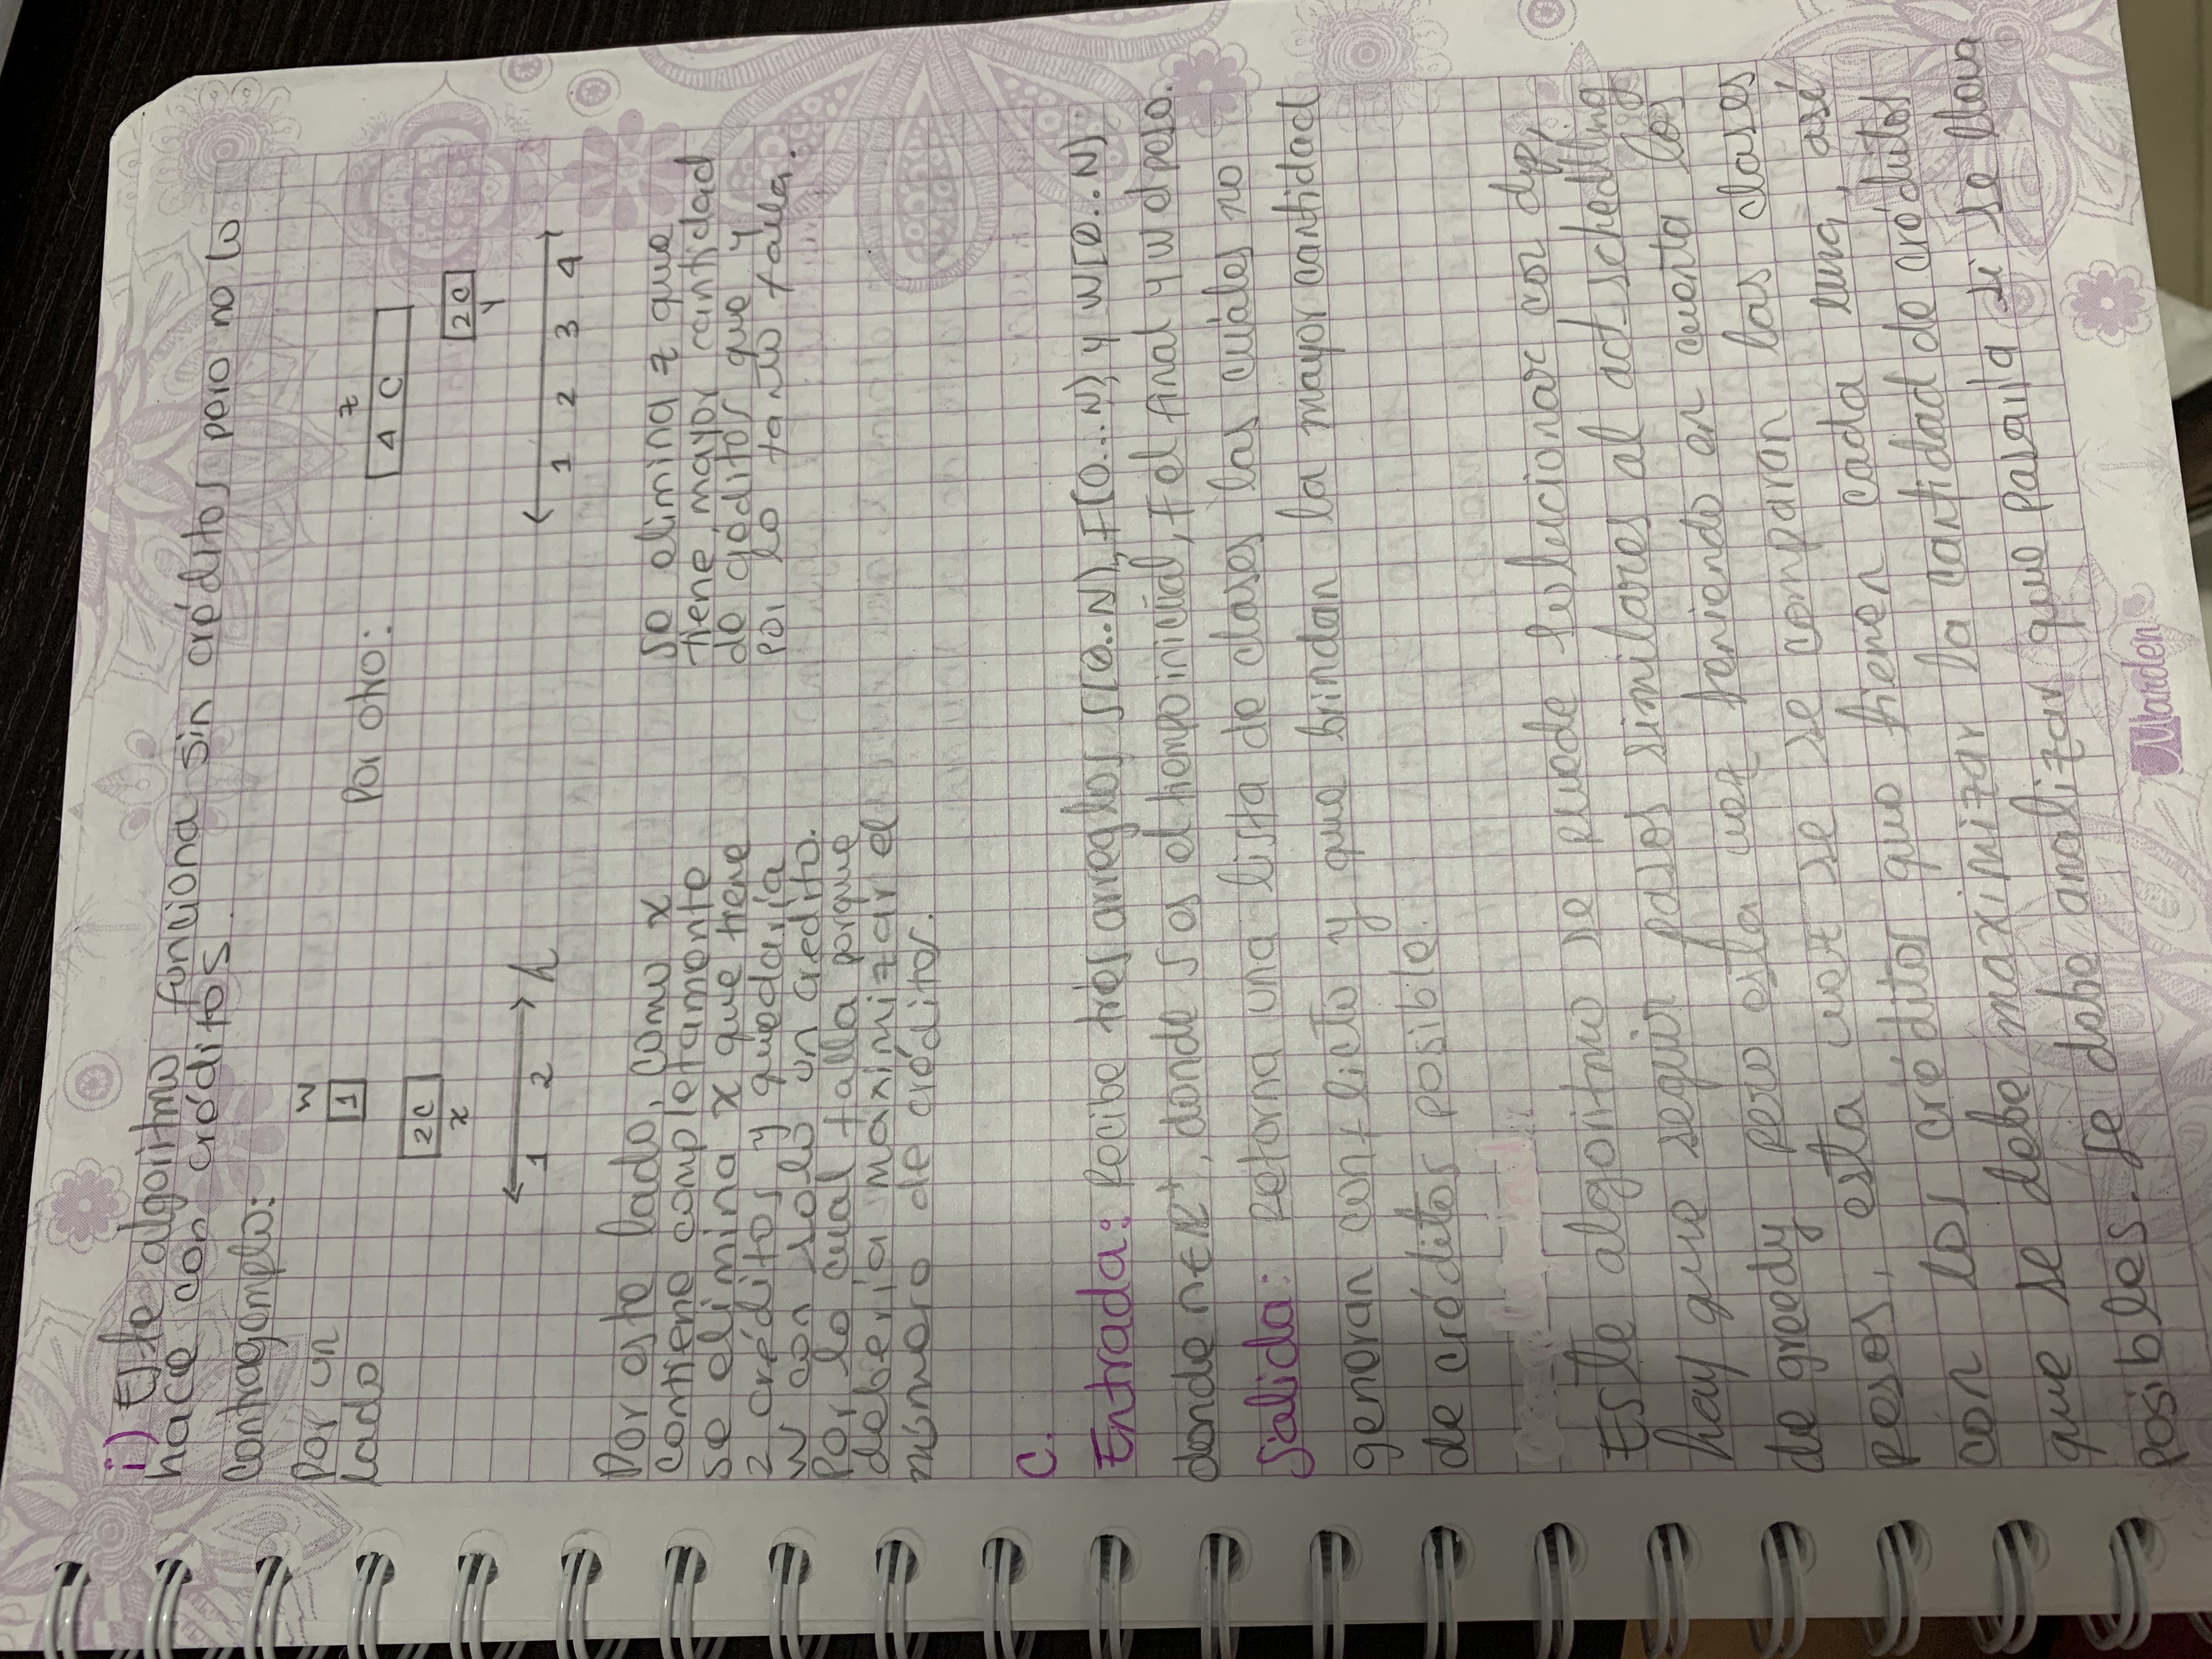 i) Este algoritmo funciona sin créditos pero no lo
hace con créditos.
Contraejemplo:
Por un
lado
w
1
2C
x
1 2 h
Por otro:
z
4 C
2C
y
1 2 3 4
Por este lado, como x
contiene completamente
se elimina x que tiene
2 créditos y quedaría
W con solo un credito.
Por lo cual falla porque
debería maximizar el
número de créditos.
se elimina z que
tiene mayor cantidad
de créditos que y
por lo tanto falla.
C.
Entrada: Recibe tres arreglos S[0..N), F[0...N) y W[0..N)
donde n∈R⁺, donde S es el tiempo inicial, F el final y W el peso.
Salida: Retorna una lista de clases las cuáles no
generan conflicto y que brindan la mayor cantidad
de créditos posible.
Este algoritmo se puede solucionar con dyp,
hay que seguir pasos similares al act schedlling
de greedy pero esta vez teniendo en cuenta los
pesos, esta vez se se comparan las clases
con los créditos que tienen cada una, asé
que se debe maximizar la cantidad de créditos
posibles. Se debe analizar que pasaría si se lleva
Marden